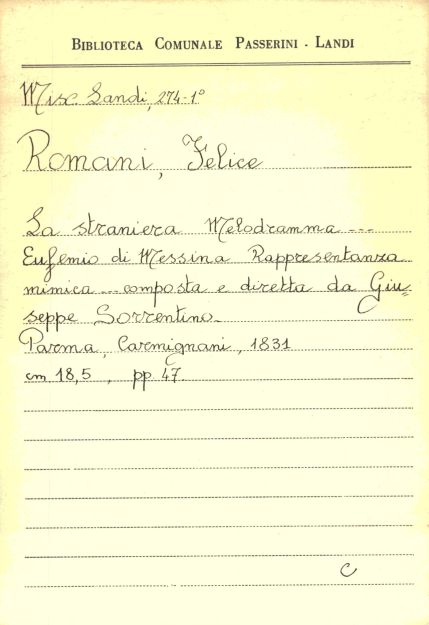 BIBLIOTECA COMUNALE PASSERINI - LANDI
Misc. Landi, 274-1°
Romani, Felice
La straniera Melodramma ---
Eufemio di Messina Rappresentanza
mimica --- composta e diretta da Giu=
seppe Sorrentino.
Parma, Carmignani, 1831
cm 18,5, pp. 47.
C